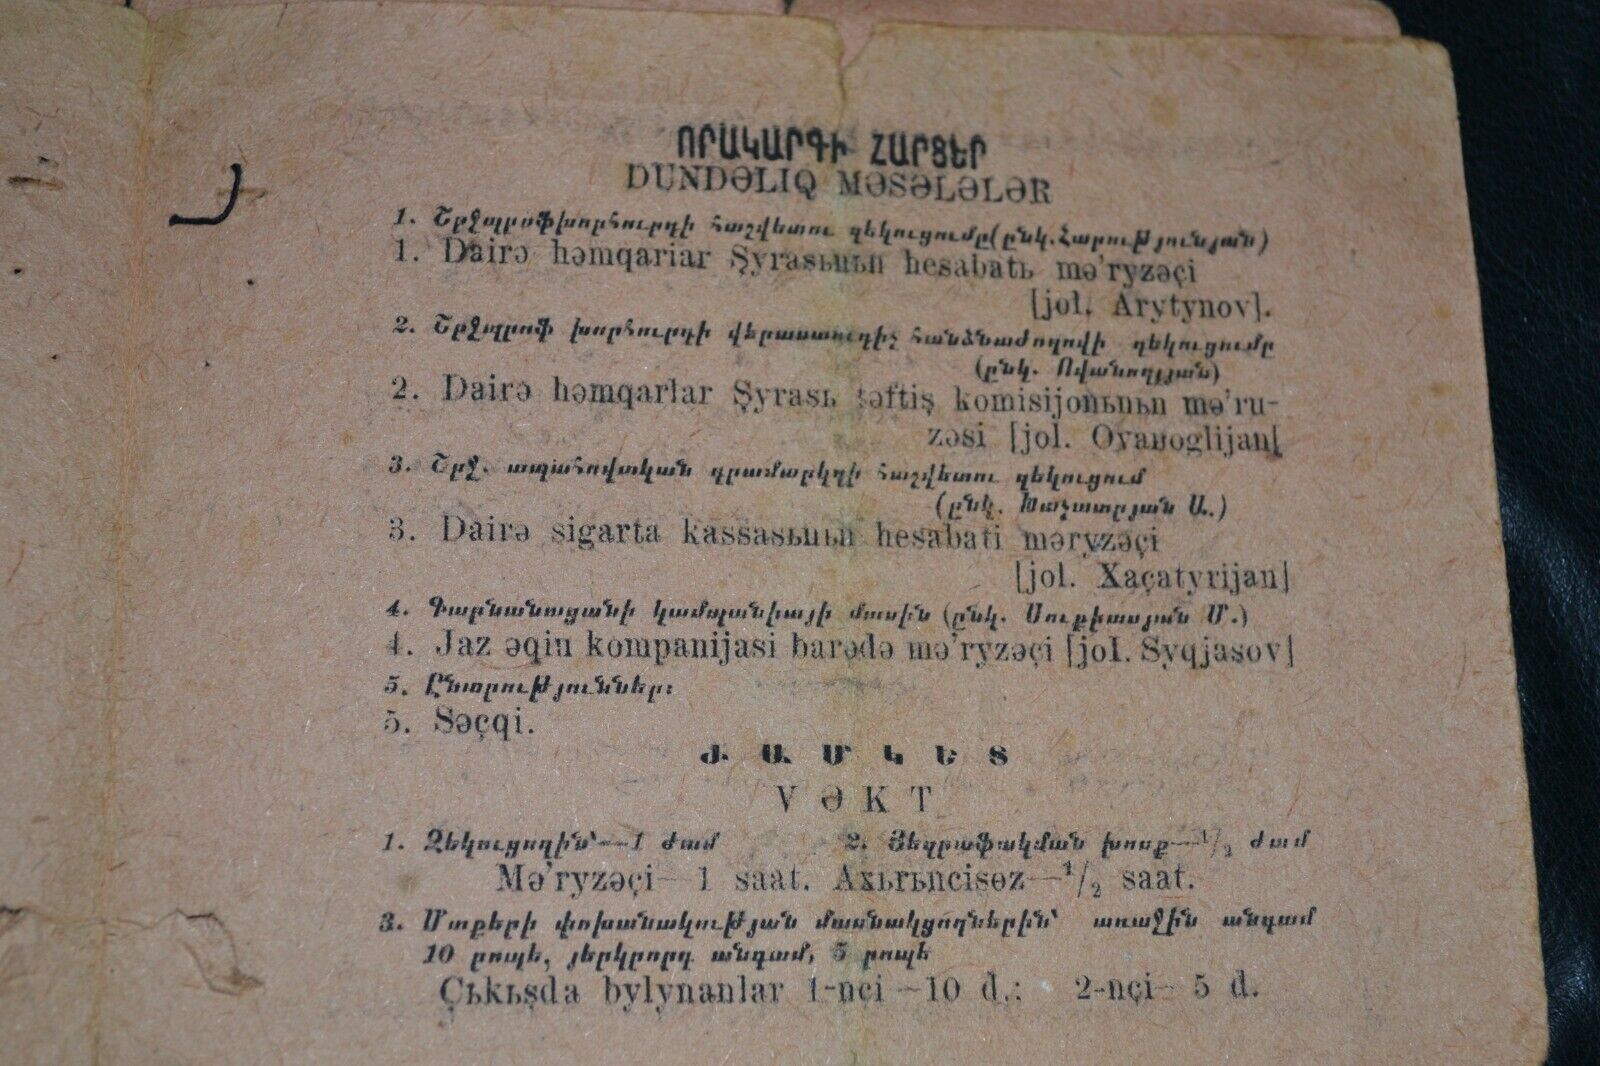 ՈՐԱԿԱՐԳԻ ՀԱՐՑԵՐ
DUNDƏLIQ MƏSƏLƏLƏR
1. Շրջպրոֆխորհուրդի հաշվետու զեկուցումը (ընկ. Հարությունյան)
1. Dairə həmqariar Şyrasьnьn hesabatь mə'ryzəçi
[jol. Arytynov].
2. Շրջպրոֆ խորհուրդի վերաստուգիչ հանձնաժողովի զեկուցումը
(ընկ. Ովանողլյան)
2. Dairə həmqarlar Şyrasь təftiş komisijonьnьn mə'ru-
zəsi [jol. Ovanoglijan[
3. Շրջ. ապահովական դրամարկղի հաշվետու զեկուցում
(ընկ. Խաչատրյան Ա.)
3. Dairə sigarta kassasьnьn hesabati məryzəçi
[jol. Xaçatyrijan]
4. Գարնանացանի կամպանիայի մասին (ընկ. Սուքիասյան Մ.)
4. Jaz əqin kompanijasi barədə mə'ryzəçi [jol. Syqjasov]
5. Ընտրություններ։
5. Səçqi.
ԺԱՄԿԵՏ
VƏKT
1. Զեկուցողին՝—1 ժամ 2. Յեզրափակման խոսք—1/2 ժամ
Mə'ryzəçi—1 saat. Axьrьncisөz—1/2 saat.
3. Մտքերի փոխանակության մասնակցողներին՝ առաջին անգամ
10 րոպե, յերկրորդ անգամ, 5 րոպե
Çьkьşda bylynanlar 1-nci—10 d.: 2-nçi—5 d.